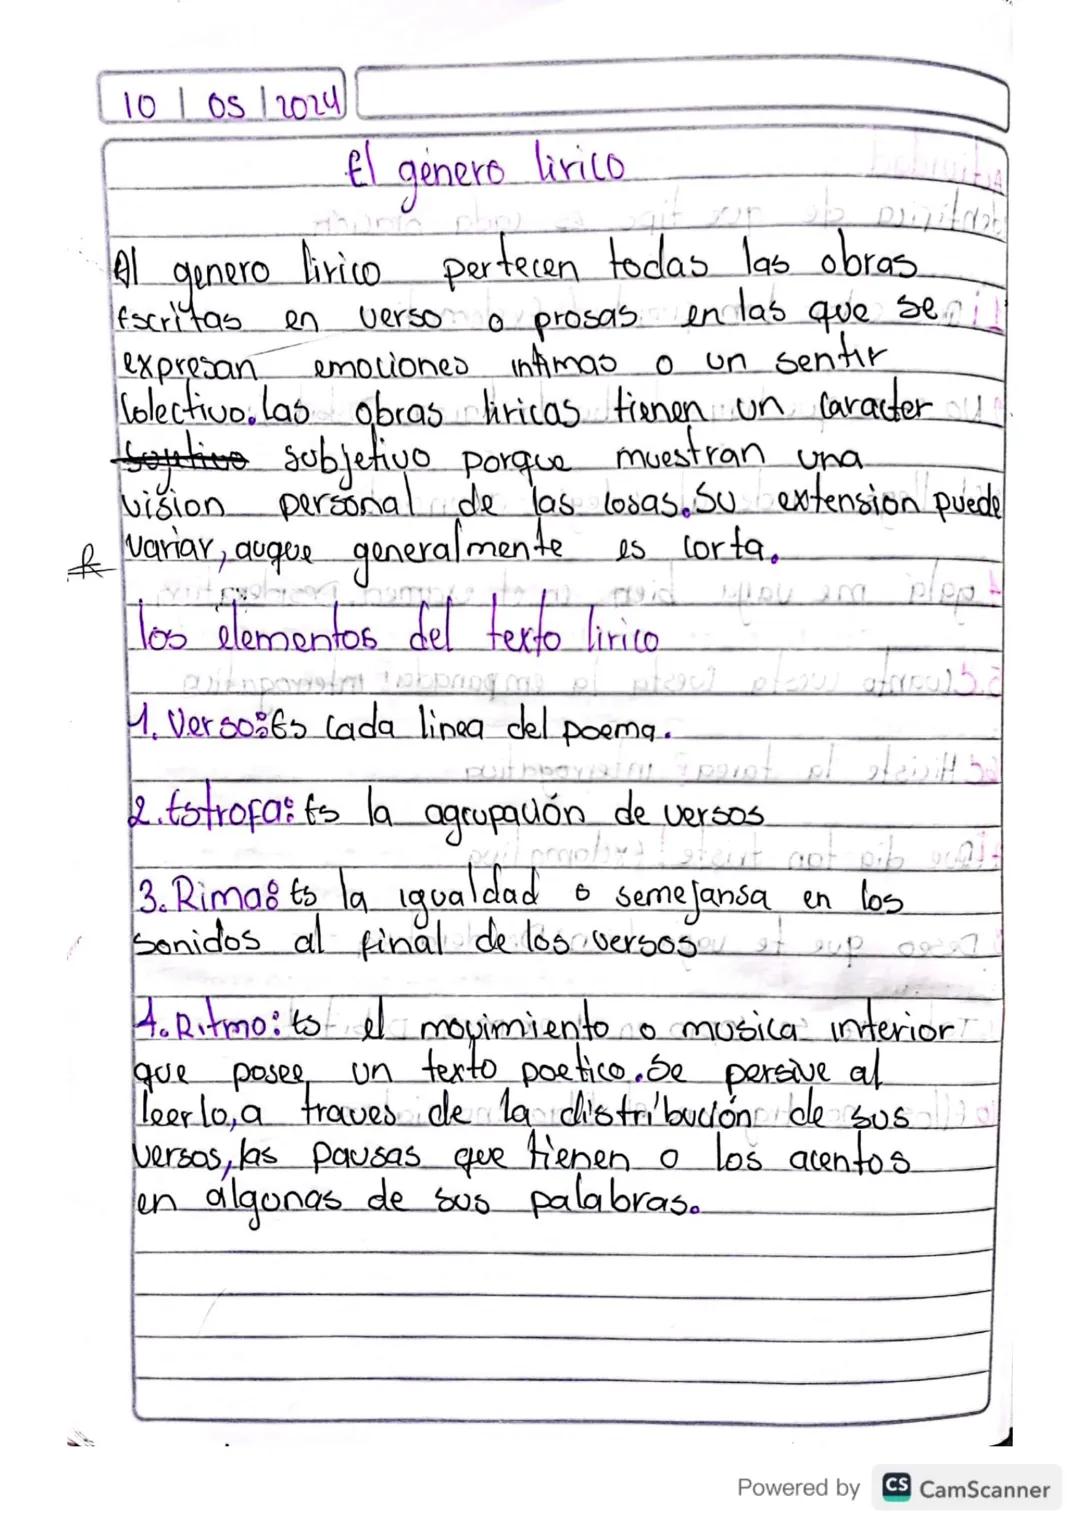 10 | 05 | 2024
El género lirico
Al genero lirico pertecen todas las obras
Escritas en verso o prosas en las que se
expresan emociones intimas o un sentir
Colectivo. las obras liricas tienen un caracter
subjetivo porque muestran una
vision personal de las cosas. Su extensión puede
variar, auque generalmente es corta.
los elementos del texto lirico
1. Verso: Es cada linea del poema.
2. Estrofa: Es la agrupación de versos
3. Rima: Es la igualdad o semejansa en los
sonidos al final de los versos
4. Ritmo: Es el movimiento o musica interior
que posee un texto poetico. Se persive al
leerlo, a traves de la distribución de sus
versos, las pausas que tienen o los acentos
en algunas de sus palabras.
Powered by CS CamScanner